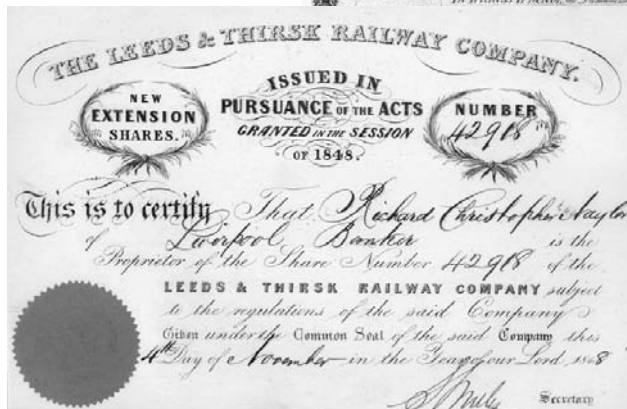 In Witness whereof, the Common
THE LEEDS & THIRSK RAILWAY COMPANY.
NEW EXTENSION SHARES.
ISSUED IN
PURSUANCE OF THE ACTS
GRANTED IN THE SESSION
OF 1848.
NUMBER
42918
This is to certify That Richard Christopher Naylor
of Liverpool, Banker is the
Proprietor of the Share Number 42918 of the
LEEDS & THIRSK RAILWAY COMPANY subject
to the regulations of the said Company
Given under the Common Seal of the said Company this
4th Day of November in the Year of our Lord 1848
S Smiles Secretary